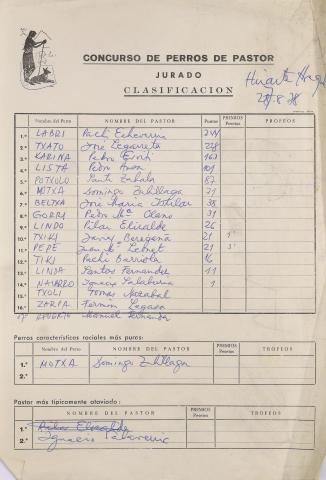 CONCURSO DE PERROS DE PASTOR
JURADO
CLASIFICACION
Huarte
Nombre del Perro NOMBRE DEL PASTOR Puntos PREMIOS Pesetas TROFEOS
1.º LABRI Pachi Echeverria 244
2.º TXATO José Legarreta 228
3.º KARINA Pedro 163
4.º LISTA Pedro 101
5.º POTXOLO Santi Zabala 87
6.º MOTXA Domingo Zubillaga 71
7.º BELTXA José Maria 38
8.º GORRI Pedro Mª Olano 31
9.º LINDO Pilar Elizalde 26
10.º TXIKI 21 1º
11.º PEPE Juan Mª 21 3º
12.º TIKI Pachi Barriola 16
13.º LINDA Santos Fernandez 11
14.º NAVARRO Ignacio 1
15.º TXOLI Tomas
16.º ZARPA Fermin
17 Manuel
Perros características raciales más puros:
Nombre del Perro NOMBRE DEL PASTOR PREMIOS Pesetas TROFEOS
1.º MOTXA Domingo Zubillaga
2.º
Pastor más típicamente ataviado:
NOMBRE DEL PASTOR PREMIOS Pesetas TROFEOS
1.º Pilar Elizalde
2.º Ignacio